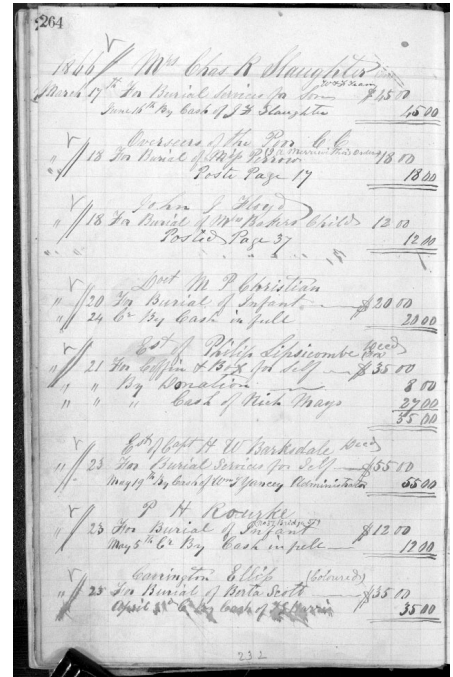 264
1866 Mrs Chas R Slaughter
March 17th For Burial Services for son $45 00
June 16th By Cash of J F Slaughter 45 00
Overseers of the Poor C C
" 18 For Burial of Miss Perrow 18 00
Posted Page 17 18 00
John J Floyd
" 18 For Burial of Mrs Bakers Child 12 00
Posted Page 37 12 00
Doct M P Christian
" 20 For Burial of Infant $20 00
" 24 Cr By Cash in full 20 00
Est of Philip Lipsicombe Decd
" 21 For Coffin & Box for Self $35 00
" " By Donation 8 00
" " " Cash of Rich Mays 27 00
35 00
Est of Capt H W Barksdale Decd
" 23 For Burial Services for Self $55 00
May 19th By Cash of Wm T Yancey Administrator 55 00
P H Rourke
" 23 For Burial of Infant $12 00
May 5th Cr By Cash in full 12 00
Carrington Ellis (Coloured)
" 25 For Burial of Berta Scott $35 00
April Cr By Cash of 35 00
232